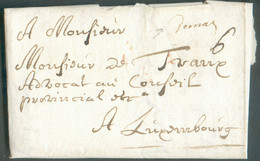 A Monsieur
Monsieur de Traux
Advocat au Conseil
provincial etc
A Luxembourg
6